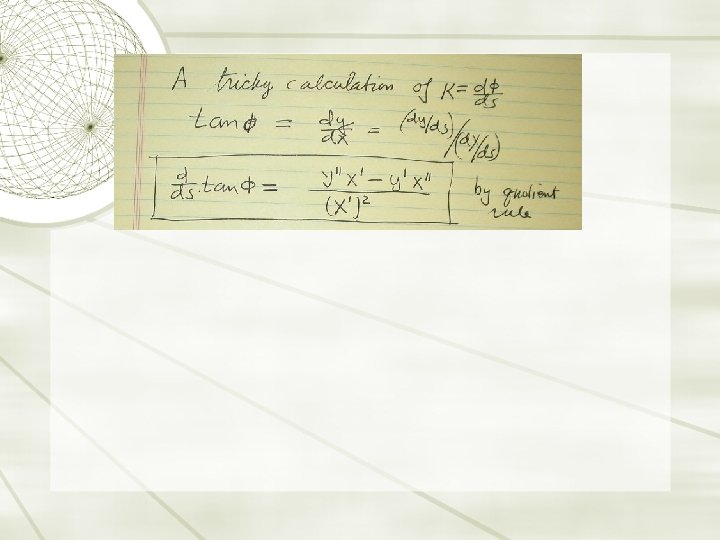 A tricky calculation of K = dϕ/ds
tan ϕ = dy/dx = (dy/ds)/(dy/ds)
d/ds tan ϕ = y''x' - y'x''/(x')² by quotient rule